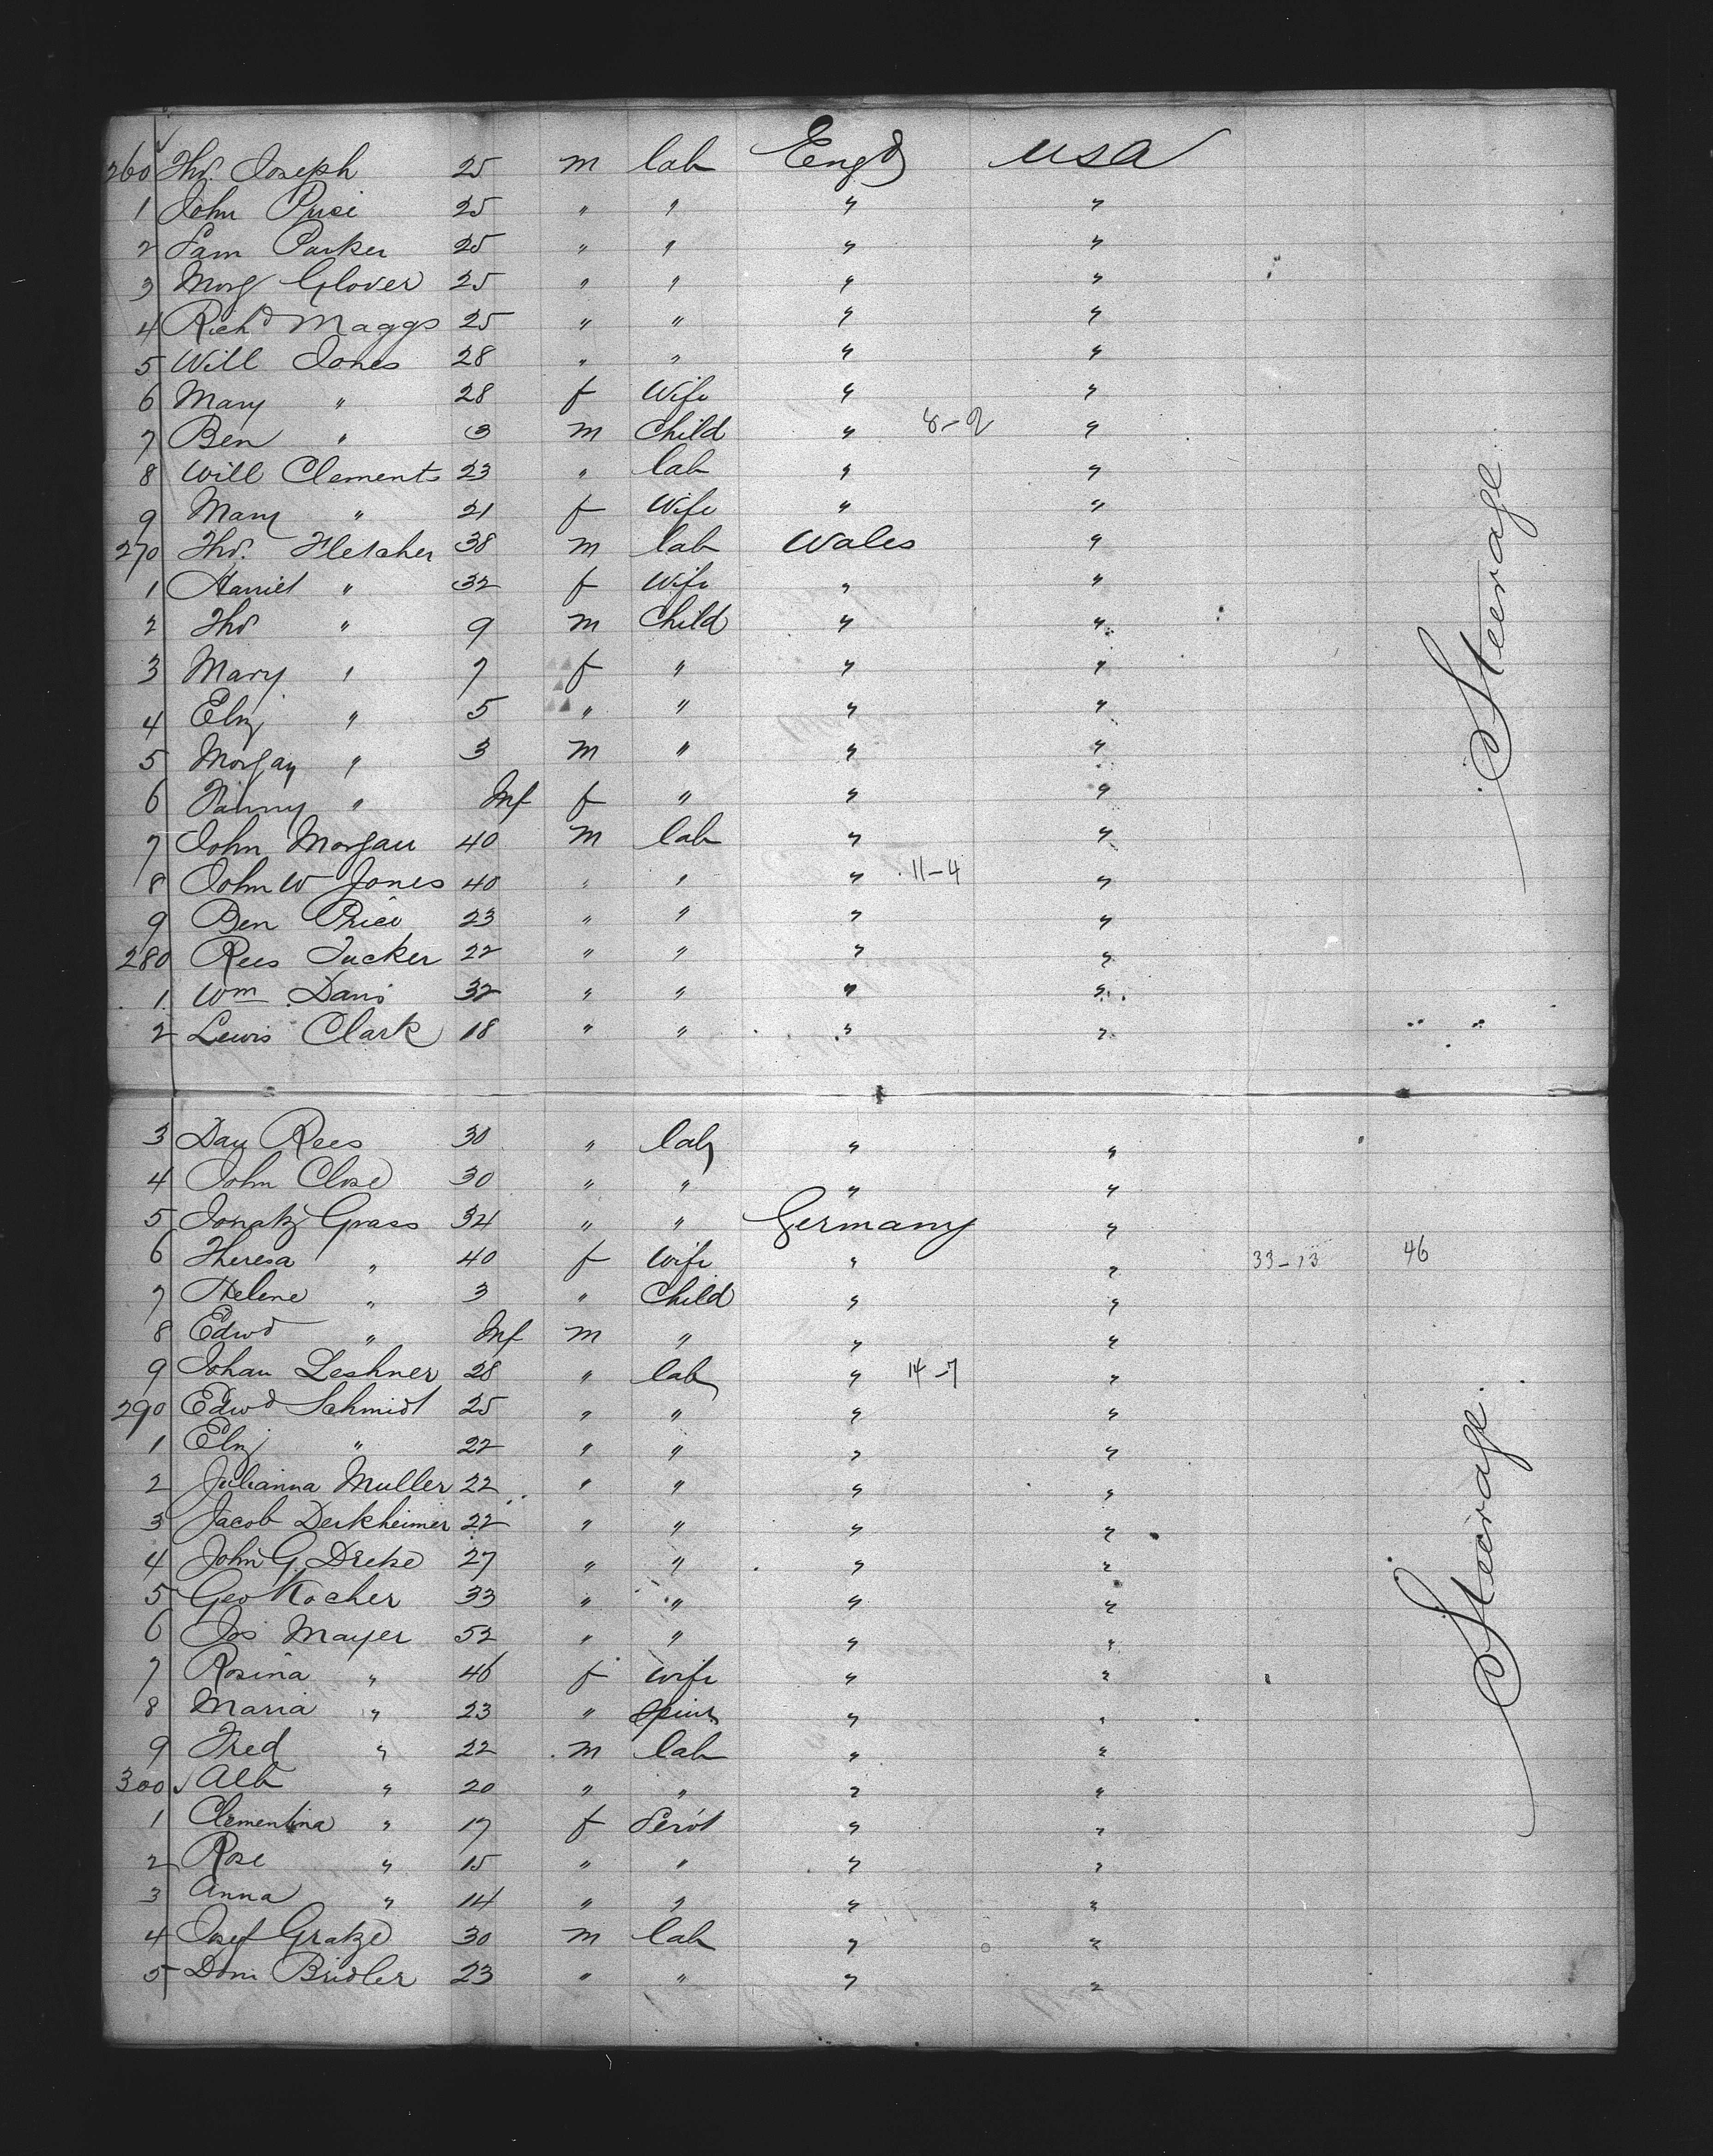 260 Thos. Joseph 25 m lab Engd USA
1 John Price 25 " " " "
2 Sam Parker 25 " " " "
3 Morg Glover 25 " " " "
4 Richd Maggs 25 " " " "
5 Will Jones 28 " " " "
6 Mary " 28 f Wife " "
7 Ben " 3 m Child " 8-2 "
8 Will Clements 23 " lab " "
9 Mary " 21 f Wife " "
270 Thos. Fletcher 38 m lab Wales "
1 Harriet " 32 f Wife " "
2 Thos " 9 m Child " "
3 Mary " 7 f " " "
4 Eliz " 5 " " " "
5 Morgan " 3 m " " "
6 Fanny " Inf f " " "
7 John Morgan 40 m lab " "
8 John W Jones 40 " " " 11-4 "
9 Ben Price 23 " " " "
280 Rees Tucker 22 " " " "
1 Wm Davis 32 " " " "
2 Lewis Clark 18 " " " "
Steerage
3 Dan Rees 30 " lab " "
4 John Close 30 " " " "
5 Ignatz Grass 34 " " Germany "
6 Theresa " 40 f Wife " " 33-13 46
7 Helene " 3 " Child " "
8 Edwd " Inf m " " "
9 Johan Leshner 28 " lab " 14-7 "
290 Edwd Schmidt 25 " " " "
1 Eliz " 22 " " " "
2 Julianna Muller 22 " " " "
3 Jacob Derkheimer 22 " " " "
4 John G. 27 " " " "
5 Geo Kocher 33 " " " "
6 Jos Mayer 52 " " " "
7 Rosina " 46 f wife " "
8 Maria " 23 " Spins " "
9 Fred " 22 m lab " "
300 Alb " 20 " " " "
1 Clementina " 17 f Servt " "
2 Rose " 15 " " " "
3 Anna " 14 " " " "
4 Josef Gratze 30 m lab " "
5 Dom Bridler 23 " " " "
Steerage